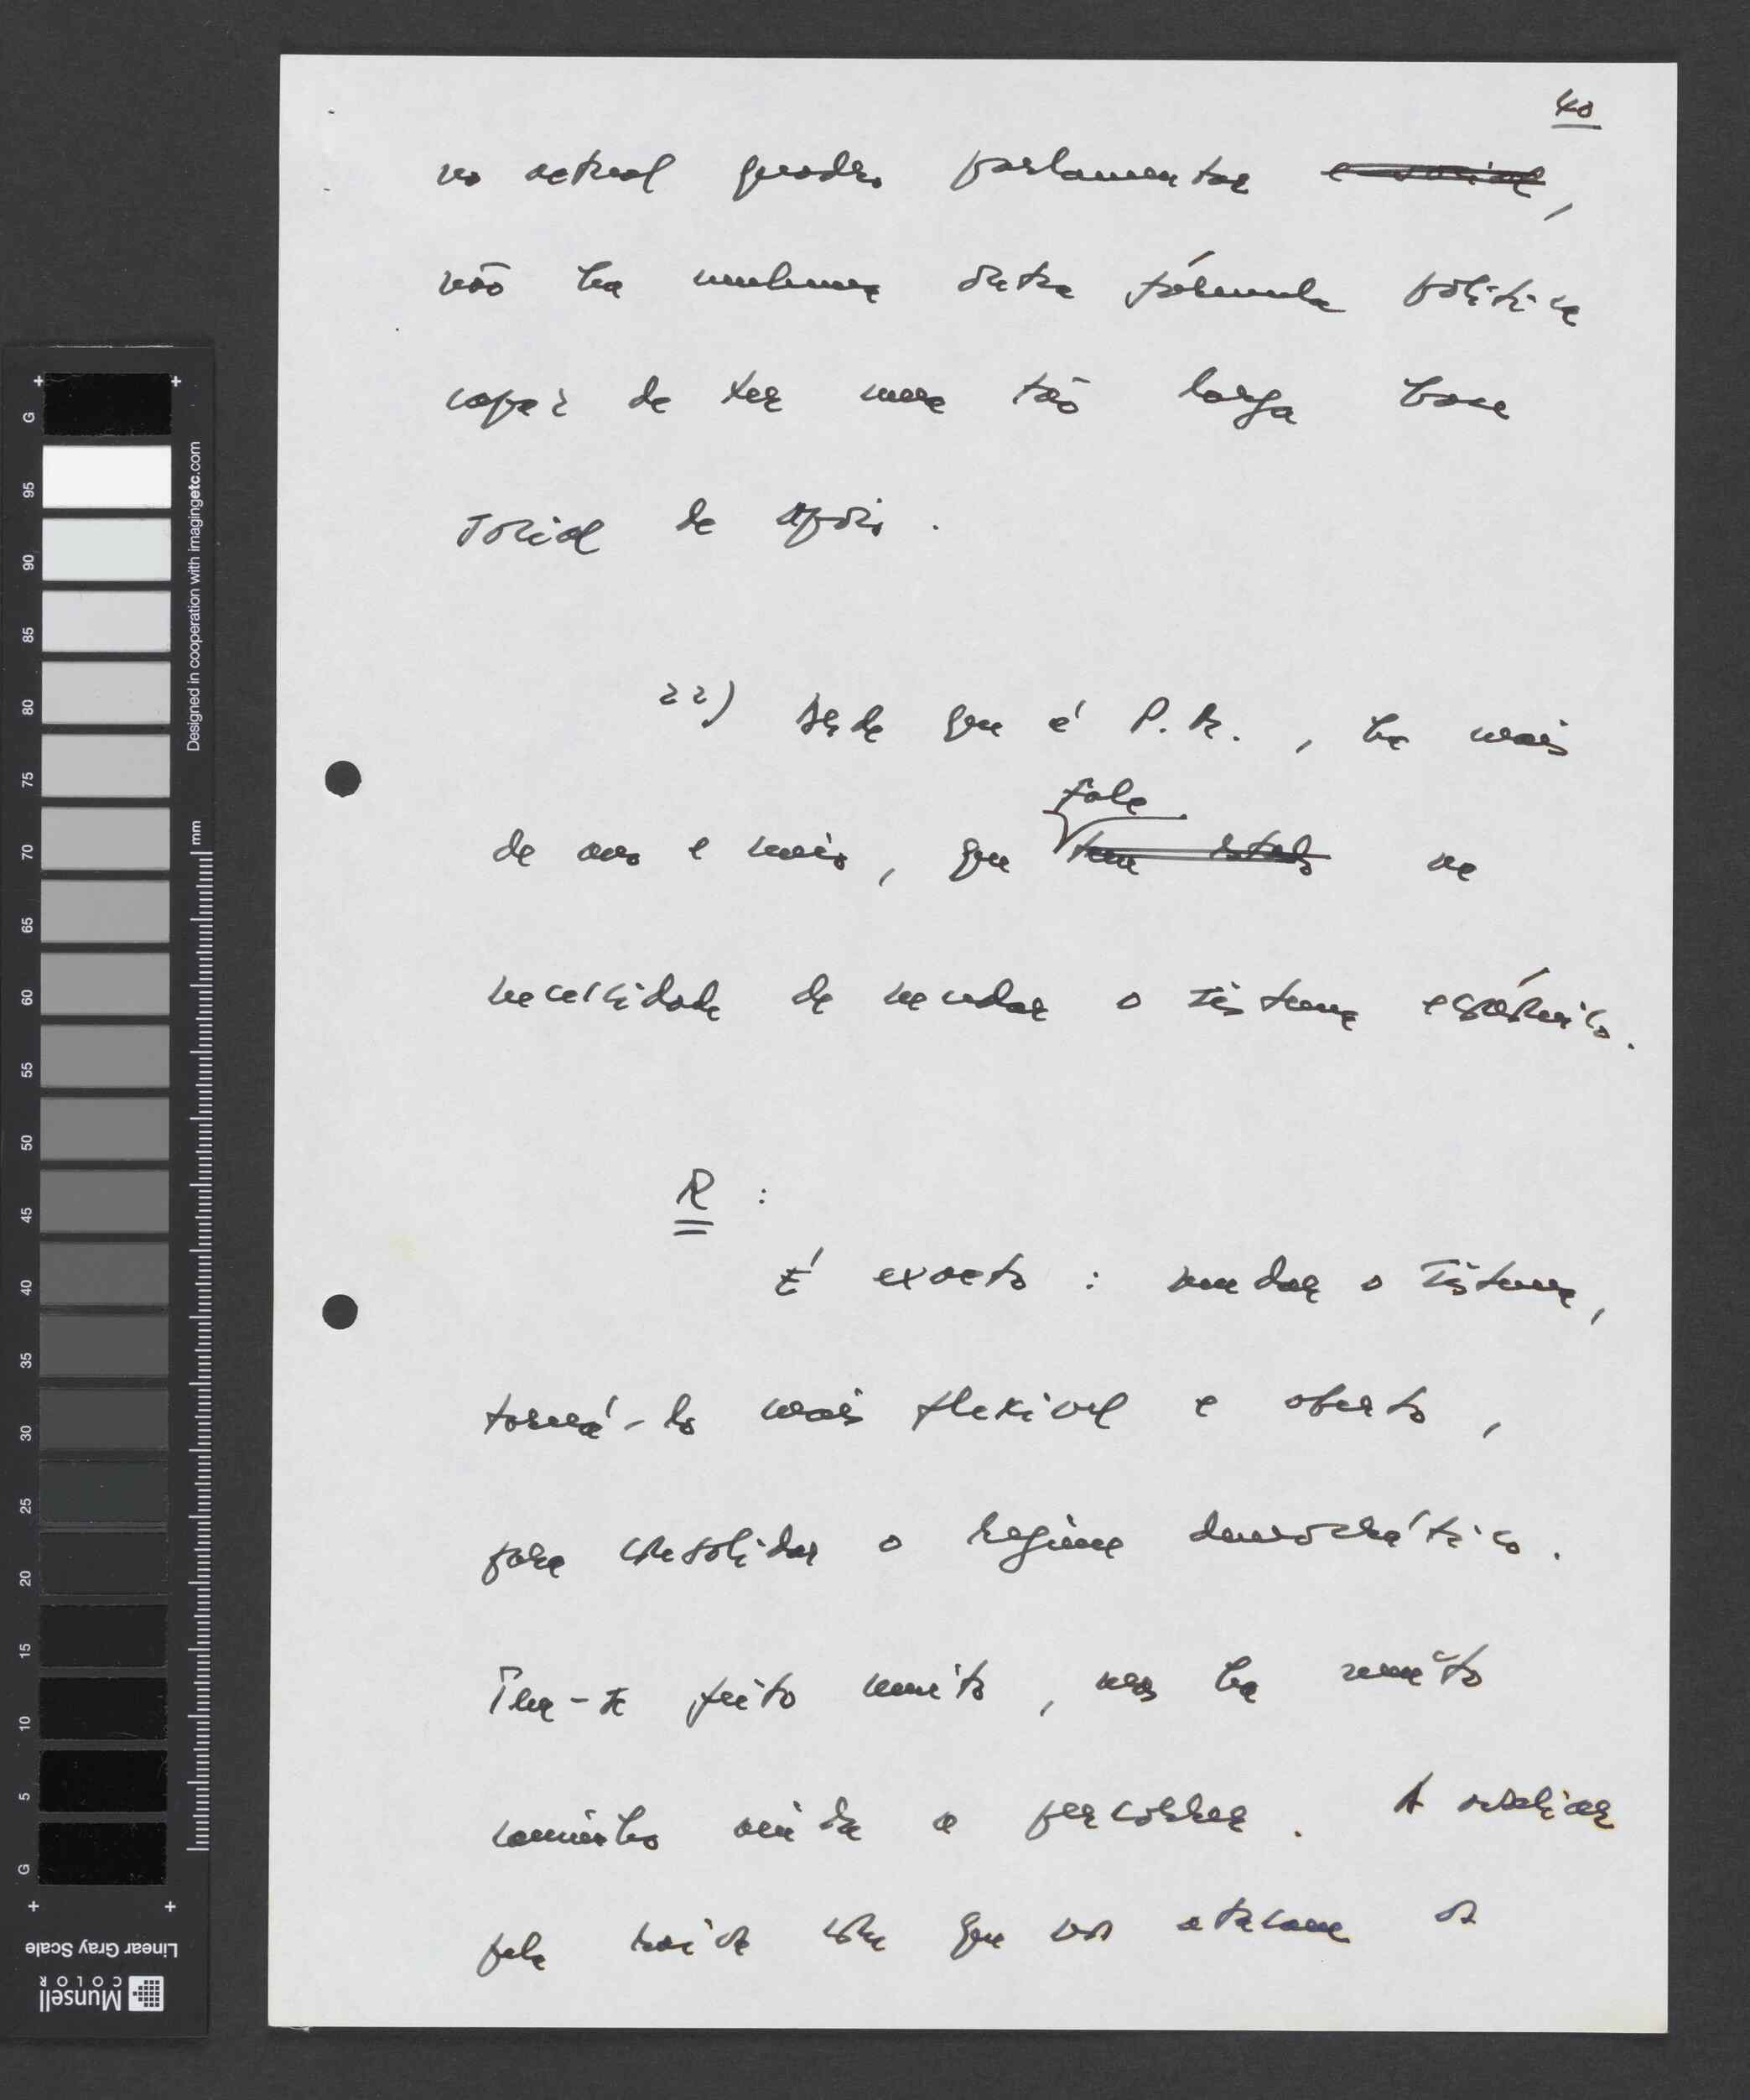 40
no actual quadro parlamentar e social,
não ha nenhuma outra fórmula politica
capaz de ter uma tão larga base
social de apoio.
22) Desde que é P.R., ha mais
fala
de ano e meio, que tem estado na
necessidade de mudar o sistema económico.
R :
É exacto : mudar o sistema,
torná-lo mais flexivel e aberto,
para consolidar o regime democrático.
Tem-se feito muito, mas ha muito
caminho ainda a percorrer. A avaliar
pela raiva com que nos atacam os
G 95 90 85 80 75 70 65 60 55 50 45 40 35 30 25 20 15 10 5 G
mm
Designed in cooperation with imagingetc.com
Linear Gray Scale
Munsell
COLOR